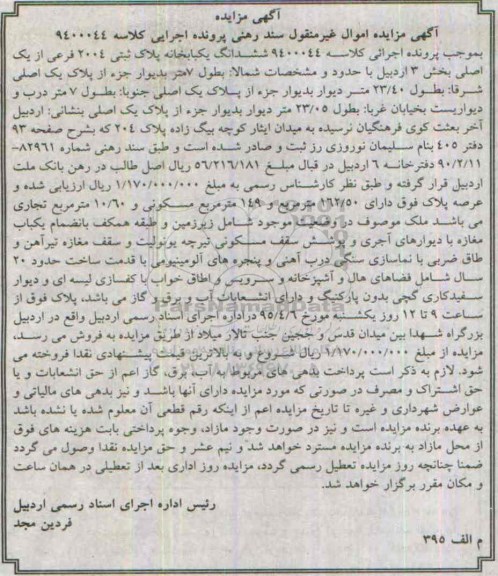 آگهی مزایده
آگهی مزایده اموال غیرمنقول سند رهنی پرونده اجرایی کلاسه ۹۴۰۰۰۴۴
بموجب پرونده اجرائی کلاسه ۹۴۰۰۰۴۴ ششدانگ یکبابخانه پلاک ثبتی ۲۰۰۴ فرعی از یک
اصلی بخش ۳ اردبیل با حدود و مشخصات شمالا: بطول ۷متر بدیوار جزء از پلاک یک اصلی
شرقا: بطول ۲۳/۴۰ متر دیوار بدیوار جزء از پلاک یک اصلی جنوبا: بطول ۷ متر درب و
دیواریست بخیابان غربا: بطول ۲۳/۰۵ متر دیوار بدیوار جزء از پلاک یک اصلی بنشانی: اردبیل
آخر بعثت کوی فرهنگیان نرسیده به میدان ایثار کوچه بیگ زاده پلاک ۲۰۴ که بشرح صفحه ۹۳
دفتر ۴۰۵ بنام سلیمان نوروزی رز ثبت و صادر شده است و طبق سند رهنی شماره ۸۲۹۶۱-
۹۰/۲/۱۱ دفترخانه ۶ اردبیل در قبال مبلغ ۵۶/۲۱۶/۱۸۱ ریال اصل طالب در رهن بانک ملت
اردبیل قرار گرفته و طبق نظر کارشناس رسمی به مبلغ ۱/۱۷۰/۰۰۰/۰۰۰ ریال ارزیابی شده و
عرصه پلاک فوق دارای ۱۶۲/۵۰ مترمربع و ۱۴۹ مترمربع مسکونی و ۱۰/۶۰ مترمربع تجاری
می باشد ملک موصوف در وضعیت موجود شامل زیرزمین و طبقه همکف بانضمام یکباب
مغازه با دیوارهای آجری و پوشش سقف مسکونی تیرچه یونولیت و سقف مغازه تیرآهن و
طاق ضربی با نماسازی سنگی درب آهنی و پنجره های آلومینیومی با قدمت ساخت حدود ۲۰
سال شامل فضاهای هال و آشپزخانه و سرویس و اطاق خواب با کفسازی لیسه ای و دیوار
سفیدکاری گچی بدون پارکینگ و دارای انشعابات آب و برق و گاز می باشد، پلاک فوق از
ساعت ۹ تا ۱۲ روز یکشنبه مورخ ۹۵/۴/۶ در اداره اجرای اسناد رسمی اردبیل واقع در اردبیل
بزرگراه شهدا بین میدان قدس و ججین جنب تالار میلاد از طریق مزایده به فروش می رسد،
مزایده از مبلغ ۱/۱۷۰/۰۰۰/۰۰۰ ریال شروع و به بالاترین قیمت پیشنهادی نقدا فروخته می
شود. لازم به ذکر است پرداخت بدهی های مربوط به آب، برق، گاز اعم از حق انشعابات و یا
حق اشتراک و مصرف در صورتی که مورد مزایده دارای آنها باشد و نیز بدهی های مالیاتی و
عوارض شهرداری و غیره تا تاریخ مزایده اعم از اینکه رقم قطعی آن معلوم شده یا نشده باشد
به عهده برنده مزایده است و نیز در صورت وجود مازاد، وجوه پرداختی بابت هزینه های فوق
از محل مازاد به برنده مزایده مسترد خواهد شد و نیم عشر و حق مزایده نقدا وصول می گردد
ضمنا چنانچه روز مزایده تعطیل رسمی گردد، مزایده روز اداری بعد از تعطیلی در همان ساعت
و مکان مقرر برگزار خواهد شد.
رئیس اداره اجرای اسناد رسمی اردبیل
فردین مجد
م الف ۳۹۵